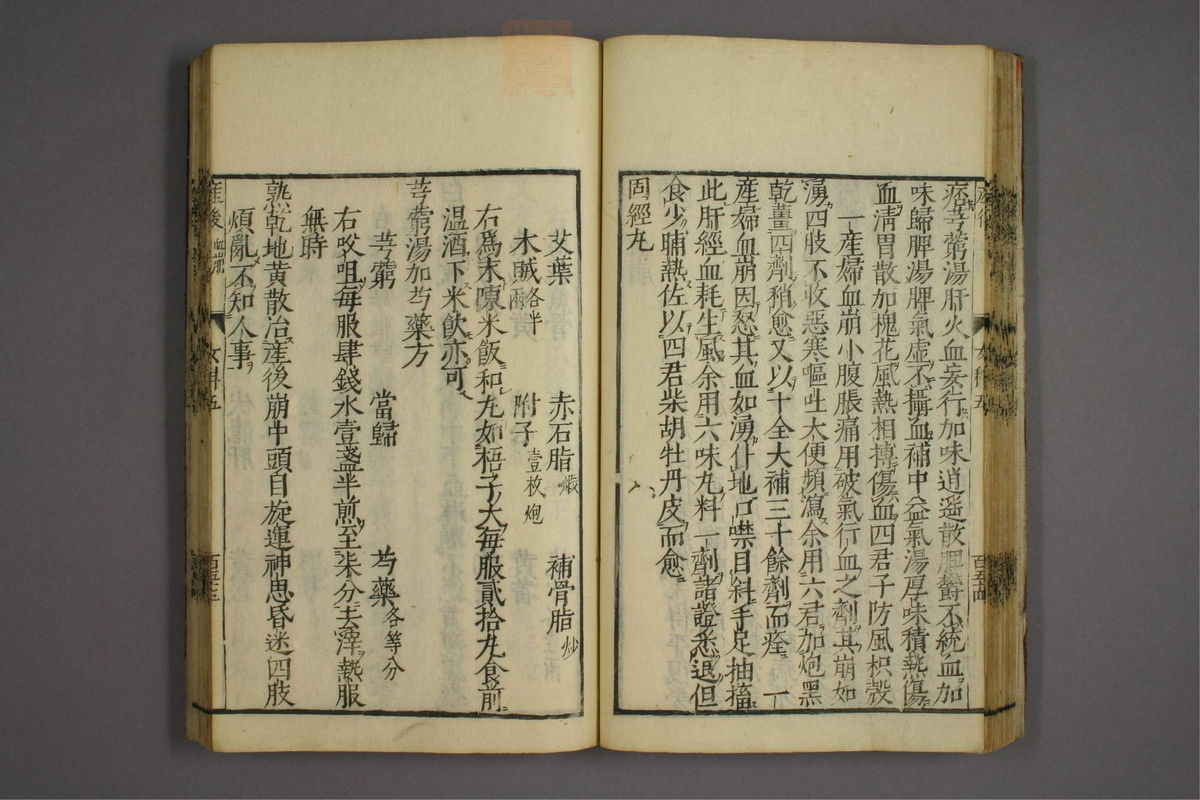 痞芎藭湯肝火血妄行加味逍遥散脾欝不統血加
味歸脾湯脾氣虛不攝血補中益氣湯厚味積熱傷
血清胃散加槐花風熱相搏傷血四君子防風枳殼
一産婦血崩小腹脹痛用破氣行血之劑其崩如
湧四肢不收惡寒嘔吐大便頻瀉余用六君加炮黑
乾薑四劑稍愈又以十全大補三十餘劑而痊 一
産婦血崩因怒其血如湧仆地口噤目斜手足抽搐
此肝經血耗生風余用六味丸料一劑諸證悉退但
食少晡熱佐以四君柴胡牡丹皮而愈
固經丸
艾葉 赤石脂煅 補骨脂炒
木賊各半兩 附子壹枚炮
右爲末陳米飯和丸如梧子大每服貳拾丸食前
温酒下米飲亦可
芎藭湯加芍藥方
芎藭 當歸 芍藥各等分
右㕮咀每服肆錢水壹盞半煎至柒分去滓熱服
無時
熟乾地黄散治産後崩中頭目旋運神思昏迷四肢
煩亂不知人事
産後血崩 女科五